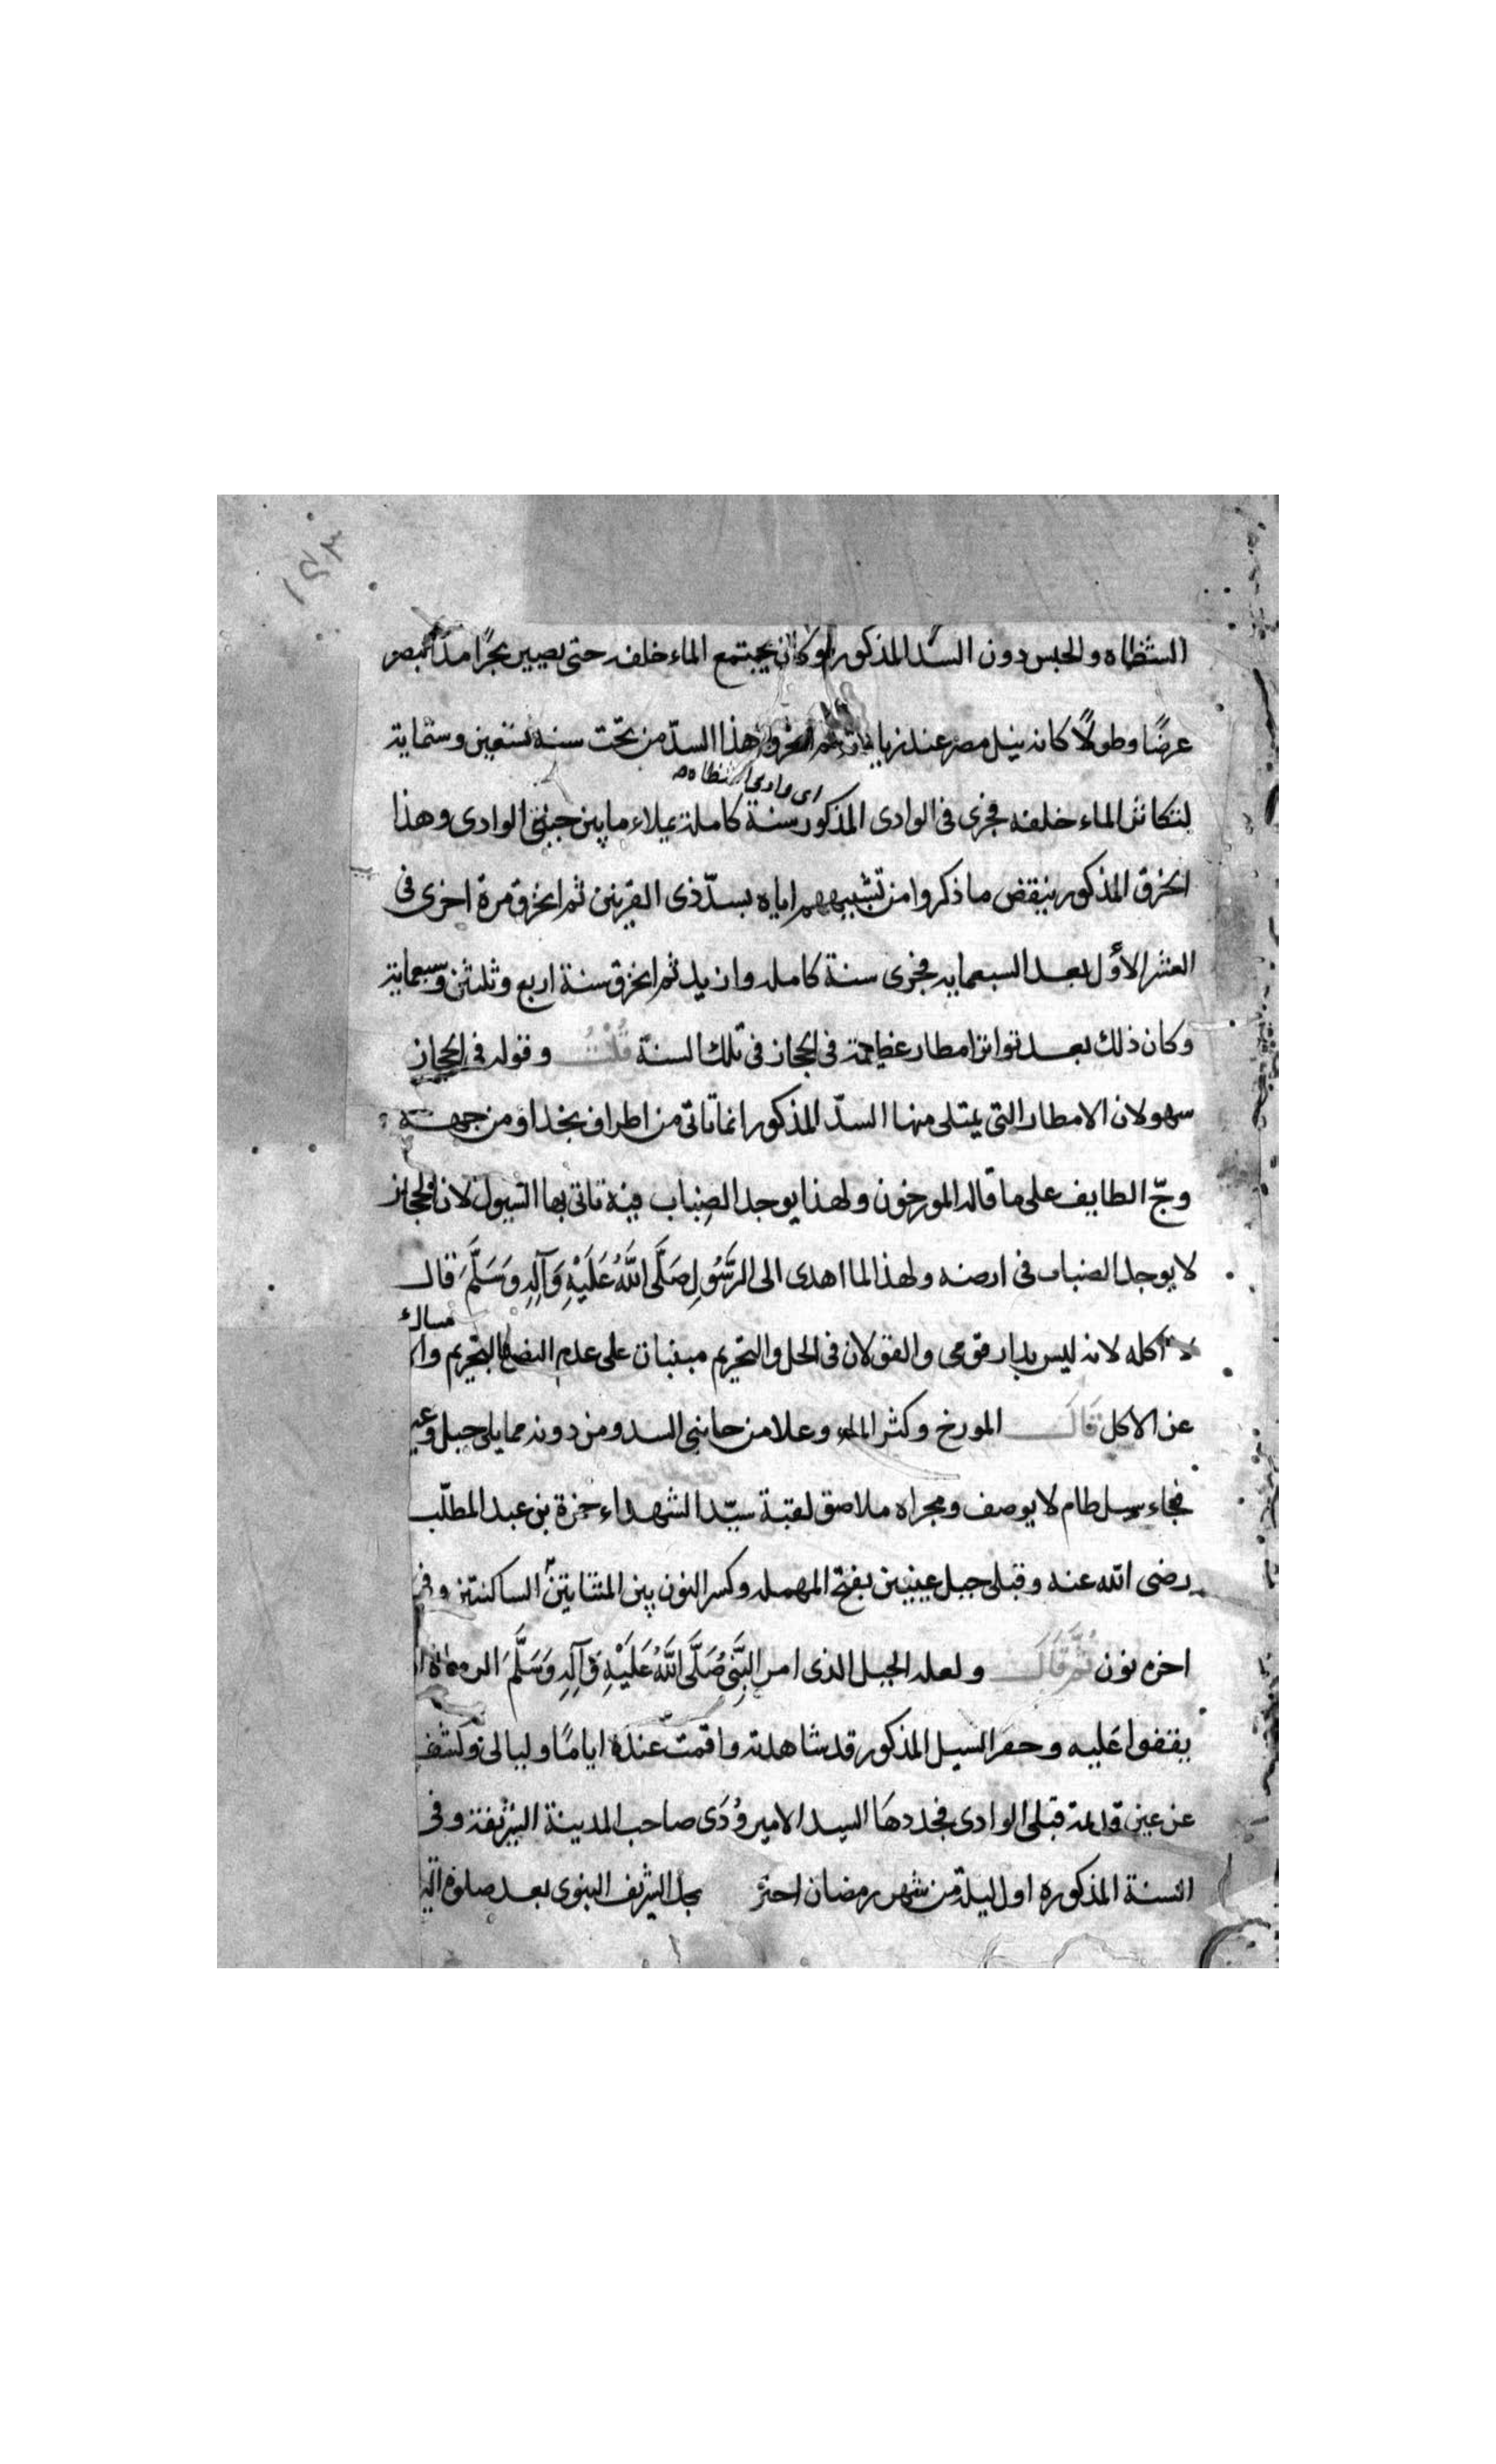 ١٤٣
الشظاه والحبس دون السدّ المذكور وكان يجتمع الماء خلفه حتى يصير بحرًا مدّ البصر
عرضًا وطولًا كانه نيل مصر عند زيادته ثم انخرق هذا السدّ من تحت سنة تسعين وستماية
اى وادى الشظاه
لتكاثر الماء خلفه فجرى فى الوادى المذكور سنة كاملة يملاء ما بين جبلى الوادى وهذا
الخرق المذكور ينقض ما ذكروا من تشبيههم اياه بسدّ ذى القرنين ثم انخرق مرة اخرى فى
العشر الأول بعد السبعمايه فجرى سنة كامله وازيد ثم انخرق سنة اربع وثلثين وسبعماية
وكان ذلك بعد تواتر امطار عظيمة فى الحجاز فى تلك السنة قُلْتُ وقوله فى الحجاز
سهو لان الامطار التى يمتلى منها السدّ المذكور انما تاتى من اطراف نجد او من جهة
وجّ الطايف على ما قاله المورخون ولهذا يوجد الضباب فيه تاتى بها السيول لان الحجاز
لا يوجد الضباب فى ارضه ولهذا لما اهدى الى الرَّسُولِ صَلَّى اللَّهُ عَلَيْهِ وَآلِهِ وَسَلَّمَ قال
لا آكله لانه ليس بدار قومى والقولان فى الحل والتحريم مبنيان على عدم النص بالتحريم
عن الاكل قَالَ المورخ وكثر الماء وعلا من جانبى السد ومن دونه مما يلى جبل وعير
فجاء سيل طام لا يوصف ومجراه ملاصق لقبة سيّد الشهداء حمزة بن عبد المطلّب
رضى الله عنه وقبلى جبل عينين بفتح المهمله وكسر النون بين المثناتين الساكنتين وفى
اخره نون ثُمَّ قَالَ ولعله الجبل الذى امر النَّبِىُّ صَلَّى اللَّهُ عَلَيْهِ وَآلِهِ وَسَلَّمَ الرماة
يقفوا عليه وحفر السيل المذكور قد شاهدته واقمت عنده ايامًا وليالى وكشف
عن عين قديمة قبلى الوادى فجددها السيد الامير وُدَى صاحب المدينة الشريفة وفى
السنة المذكوره اول ليلة من شهر رمضان احترق الشريف النبوى بعد صلوة